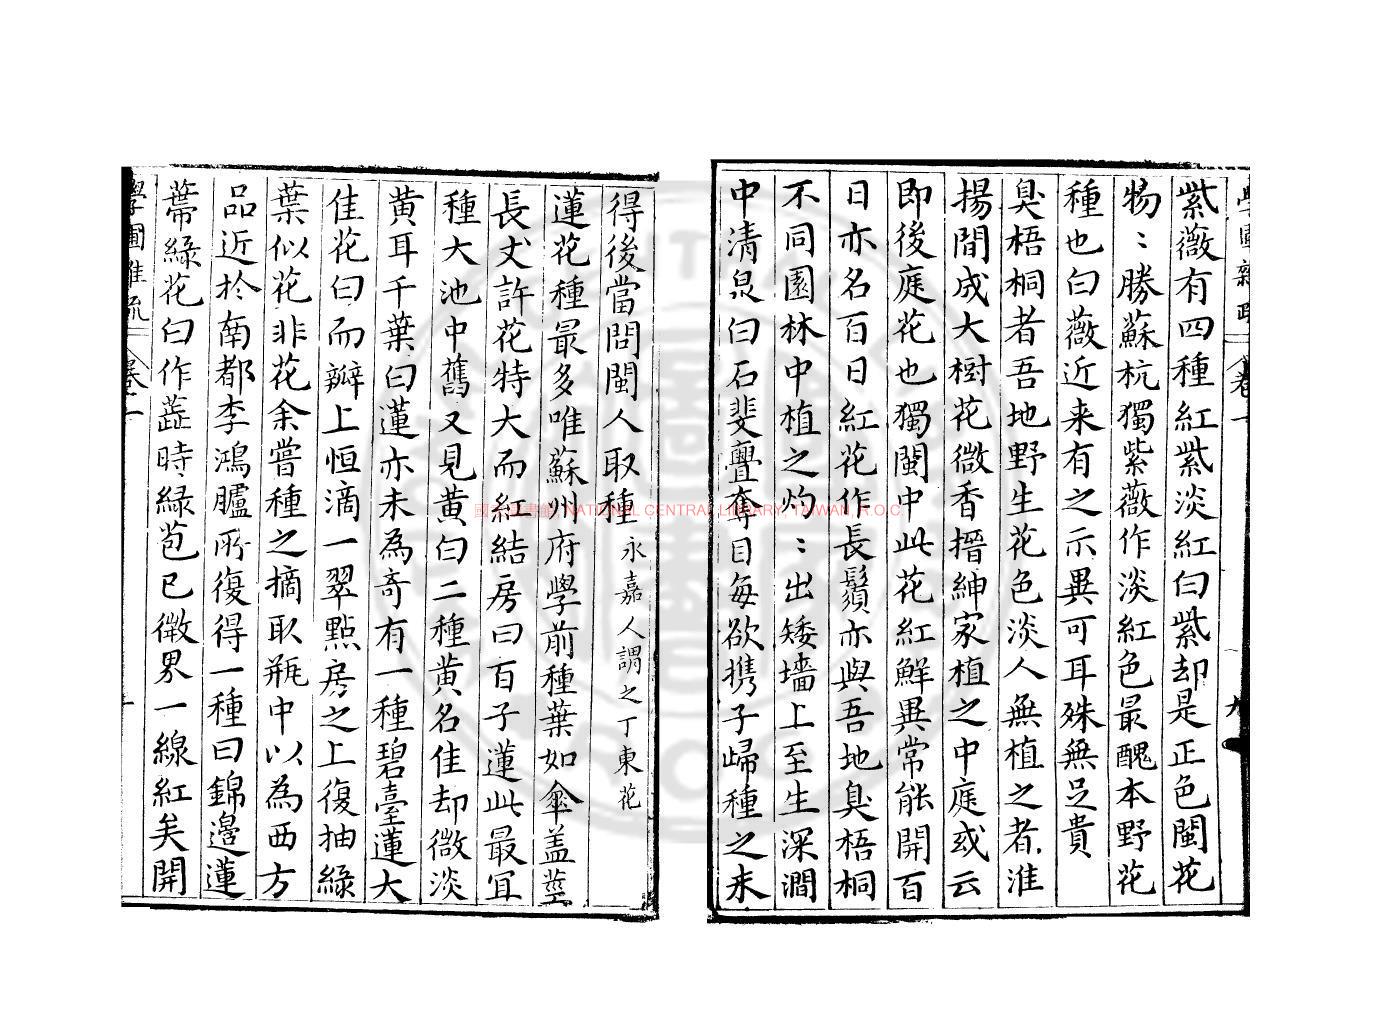 紫薇有四種紅紫淡紅白紫却是正色閩花
物〻勝蘇杭獨紫薇作淡紅色最醜本野花
種也白薇近来有之示異可耳殊無足貴
臭梧桐者吾地野生花色淡人無植之者淮
揚間成大樹花微香搢紳家植之中庭或云
即後庭花也獨閩中此花紅鮮異常能開百
日亦名百日紅花作長鬚亦與吾地臭梧桐
不同園林中植之灼〻出矮墻上至生深澗
中清泉白石斐亹奪目每欲携子歸種之未
得後當問閩人取種永嘉人謂之丁東花
蓮花種最多唯蘇州府學前種葉如傘盖莖
長丈許花特大而紅結房曰百子蓮此最冝
種大池中舊又見黄白二種黄名佳却微淡
黄耳千葉白蓮亦未為竒有一種碧臺蓮大
佳花白而瓣上恒滴一翠點房之上復抽綠
葉似花非花余嘗種之摘取瓶中以為西方
品近扵南都李鴻臚所復得一種曰錦邊蓮
蔕綠花白作蕋時緑苞已微界一線紅矣開
學圃雜疏
卷一
九
NATIONAL CENTRAL LIBRARY, TAIWAN, R.O.C.